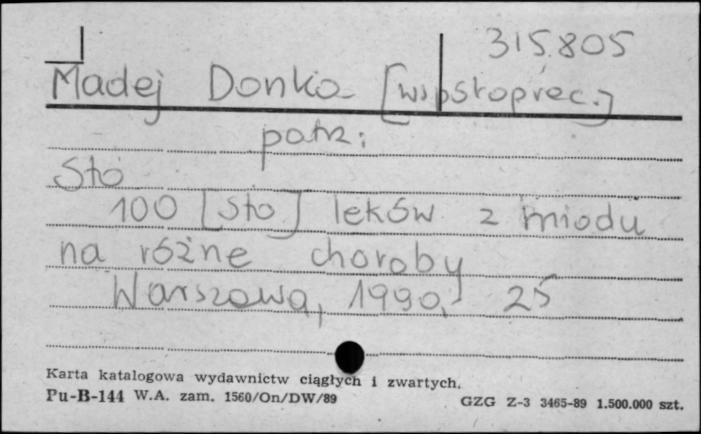 315805
Madej Donka [współoprac.]
patrz:
Sto
100 [Sto] leków z miodu
na różne choroby
Warszawa, 1990, 25
Karta katalogowa wydawnictw ciągłych i zwartych.
Pu-B-144 W.A. zam. 1560/On/DW/89
GZG Z-3 3465-89 1.500.000 szt.